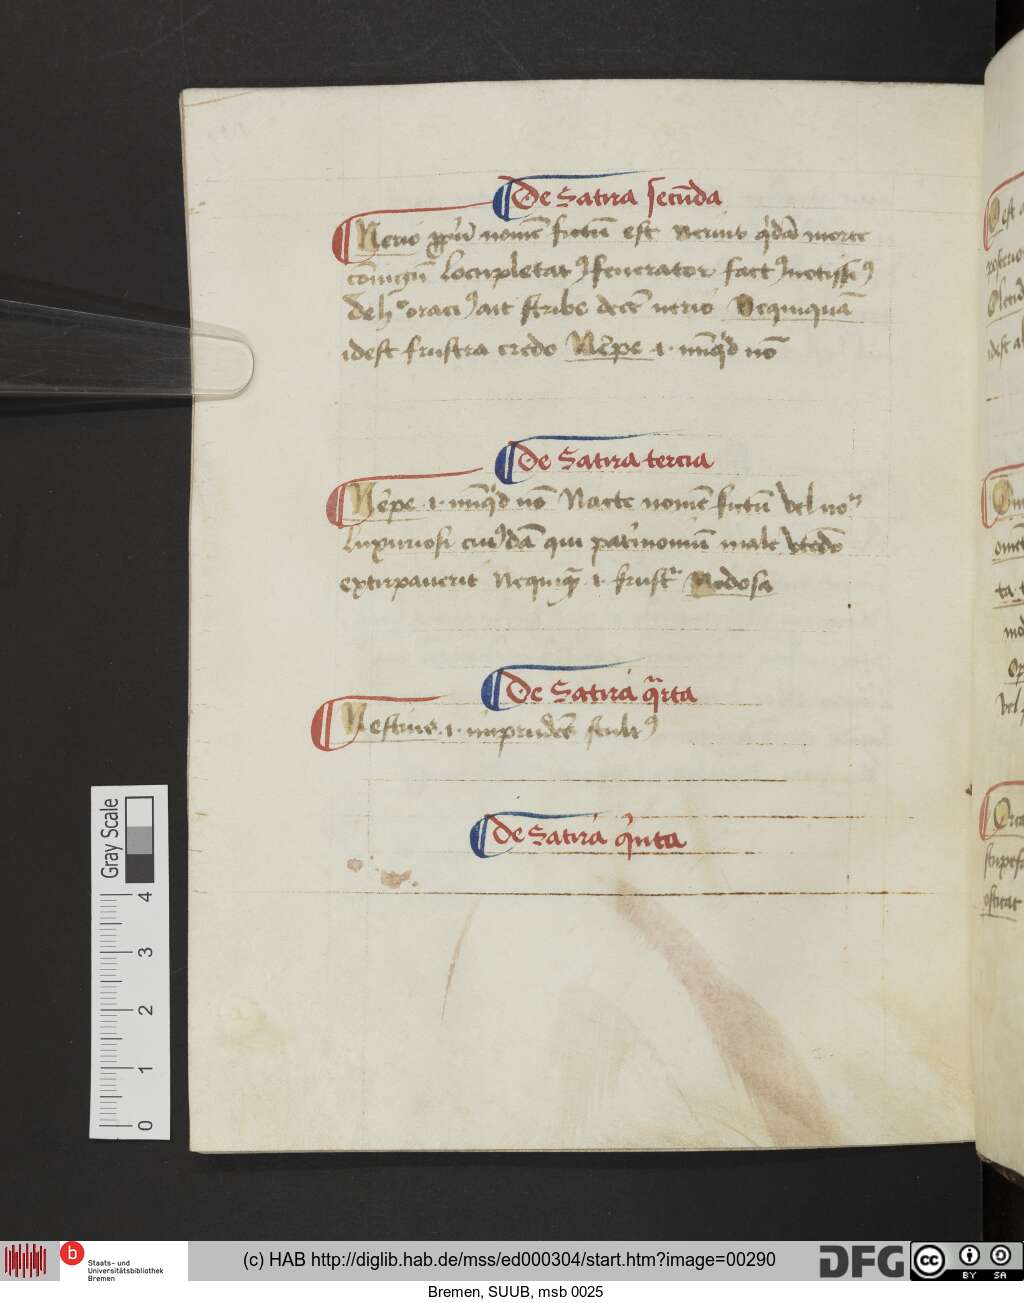 De Satira secūda
Nerio pp̄iū nomē fictū est Nerius q̇dā morte
cōiugū locupletatꝰ ⁊ fenerator factꝰ notissiꝰ
De hͦ oraciꝰ ait scribe decē nerio Nequiquā
idest frustra credo Nēpe .i. nūq̇d nō
De Satira tercia
Nēpe .i. nūq̇d nō Nacte nomē fictū vel
luxuriosi cuiꝰdā qui patrimoniū male vtēdo
extirpaverit Nequiq̄ .i. frustᵃ Nodosa
De Satira qᵃrta
Nescius .i. inprudēs stultꝰ
De Satira q̇nta
Gray Scale
4
3
2
1
0
b
Staats- und
Universitätsbibliothek
Bremen
(c) HAB http://diglib.hab.de/mss/ed000304/start.htm?image=00290
DFG
cc
BY SA
Bremen, SUUB, msb 0025